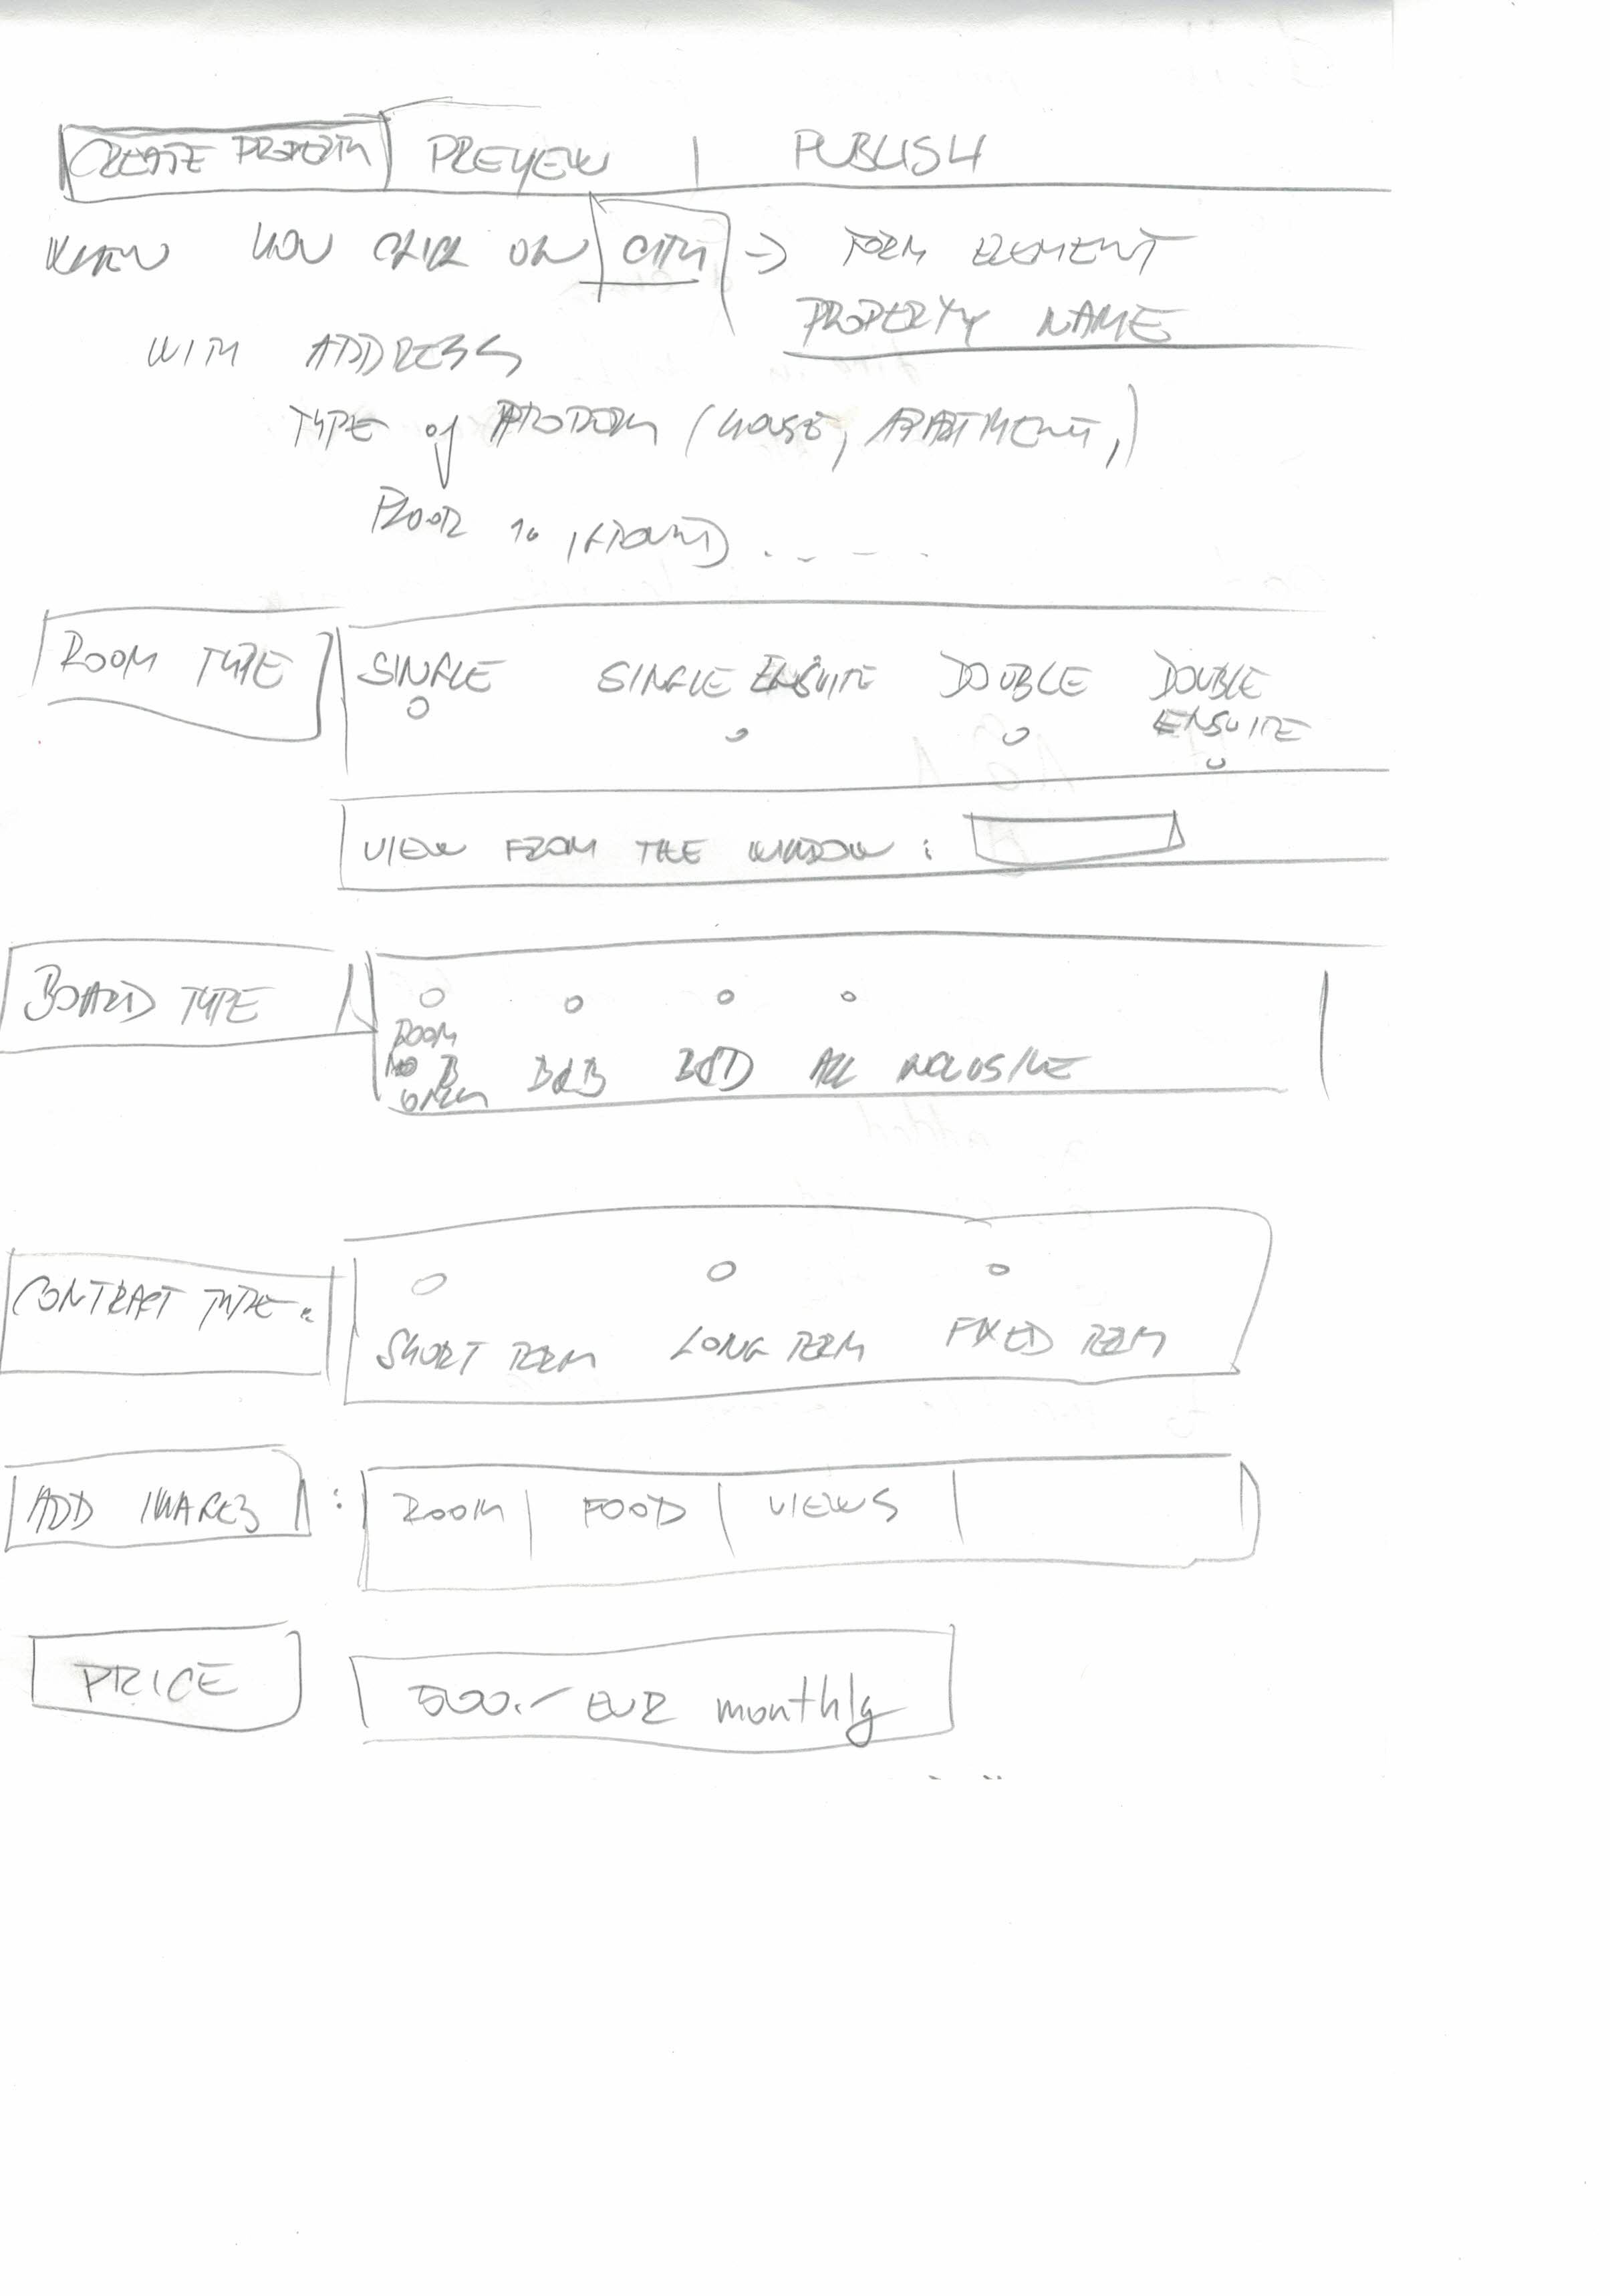 CREATE PROPERTY PREVIEW | PUBLISH
WHEN YOU CLICK ON CITY → FORM ELEMENT
PROPERTY NAME
WITH ADDRESS
TYPE of PROPERTY (HOUSE, APARTMENT,)
FLOOR
ROOM TYPE
SINGLE SINGLE ENSUITE DOUBLE DOUBLE
ENSUITE
VIEW FROM THE WINDOW :
BOARD TYPE
ROOM
ONLY B&B B&D ALL INCLUSIVE
CONTRACT TYPE:
SHORT TERM LONG TERM FIXED TERM
ADD IMAGES : ROOM FOOD VIEWS
PRICE 500.- EUR monthly